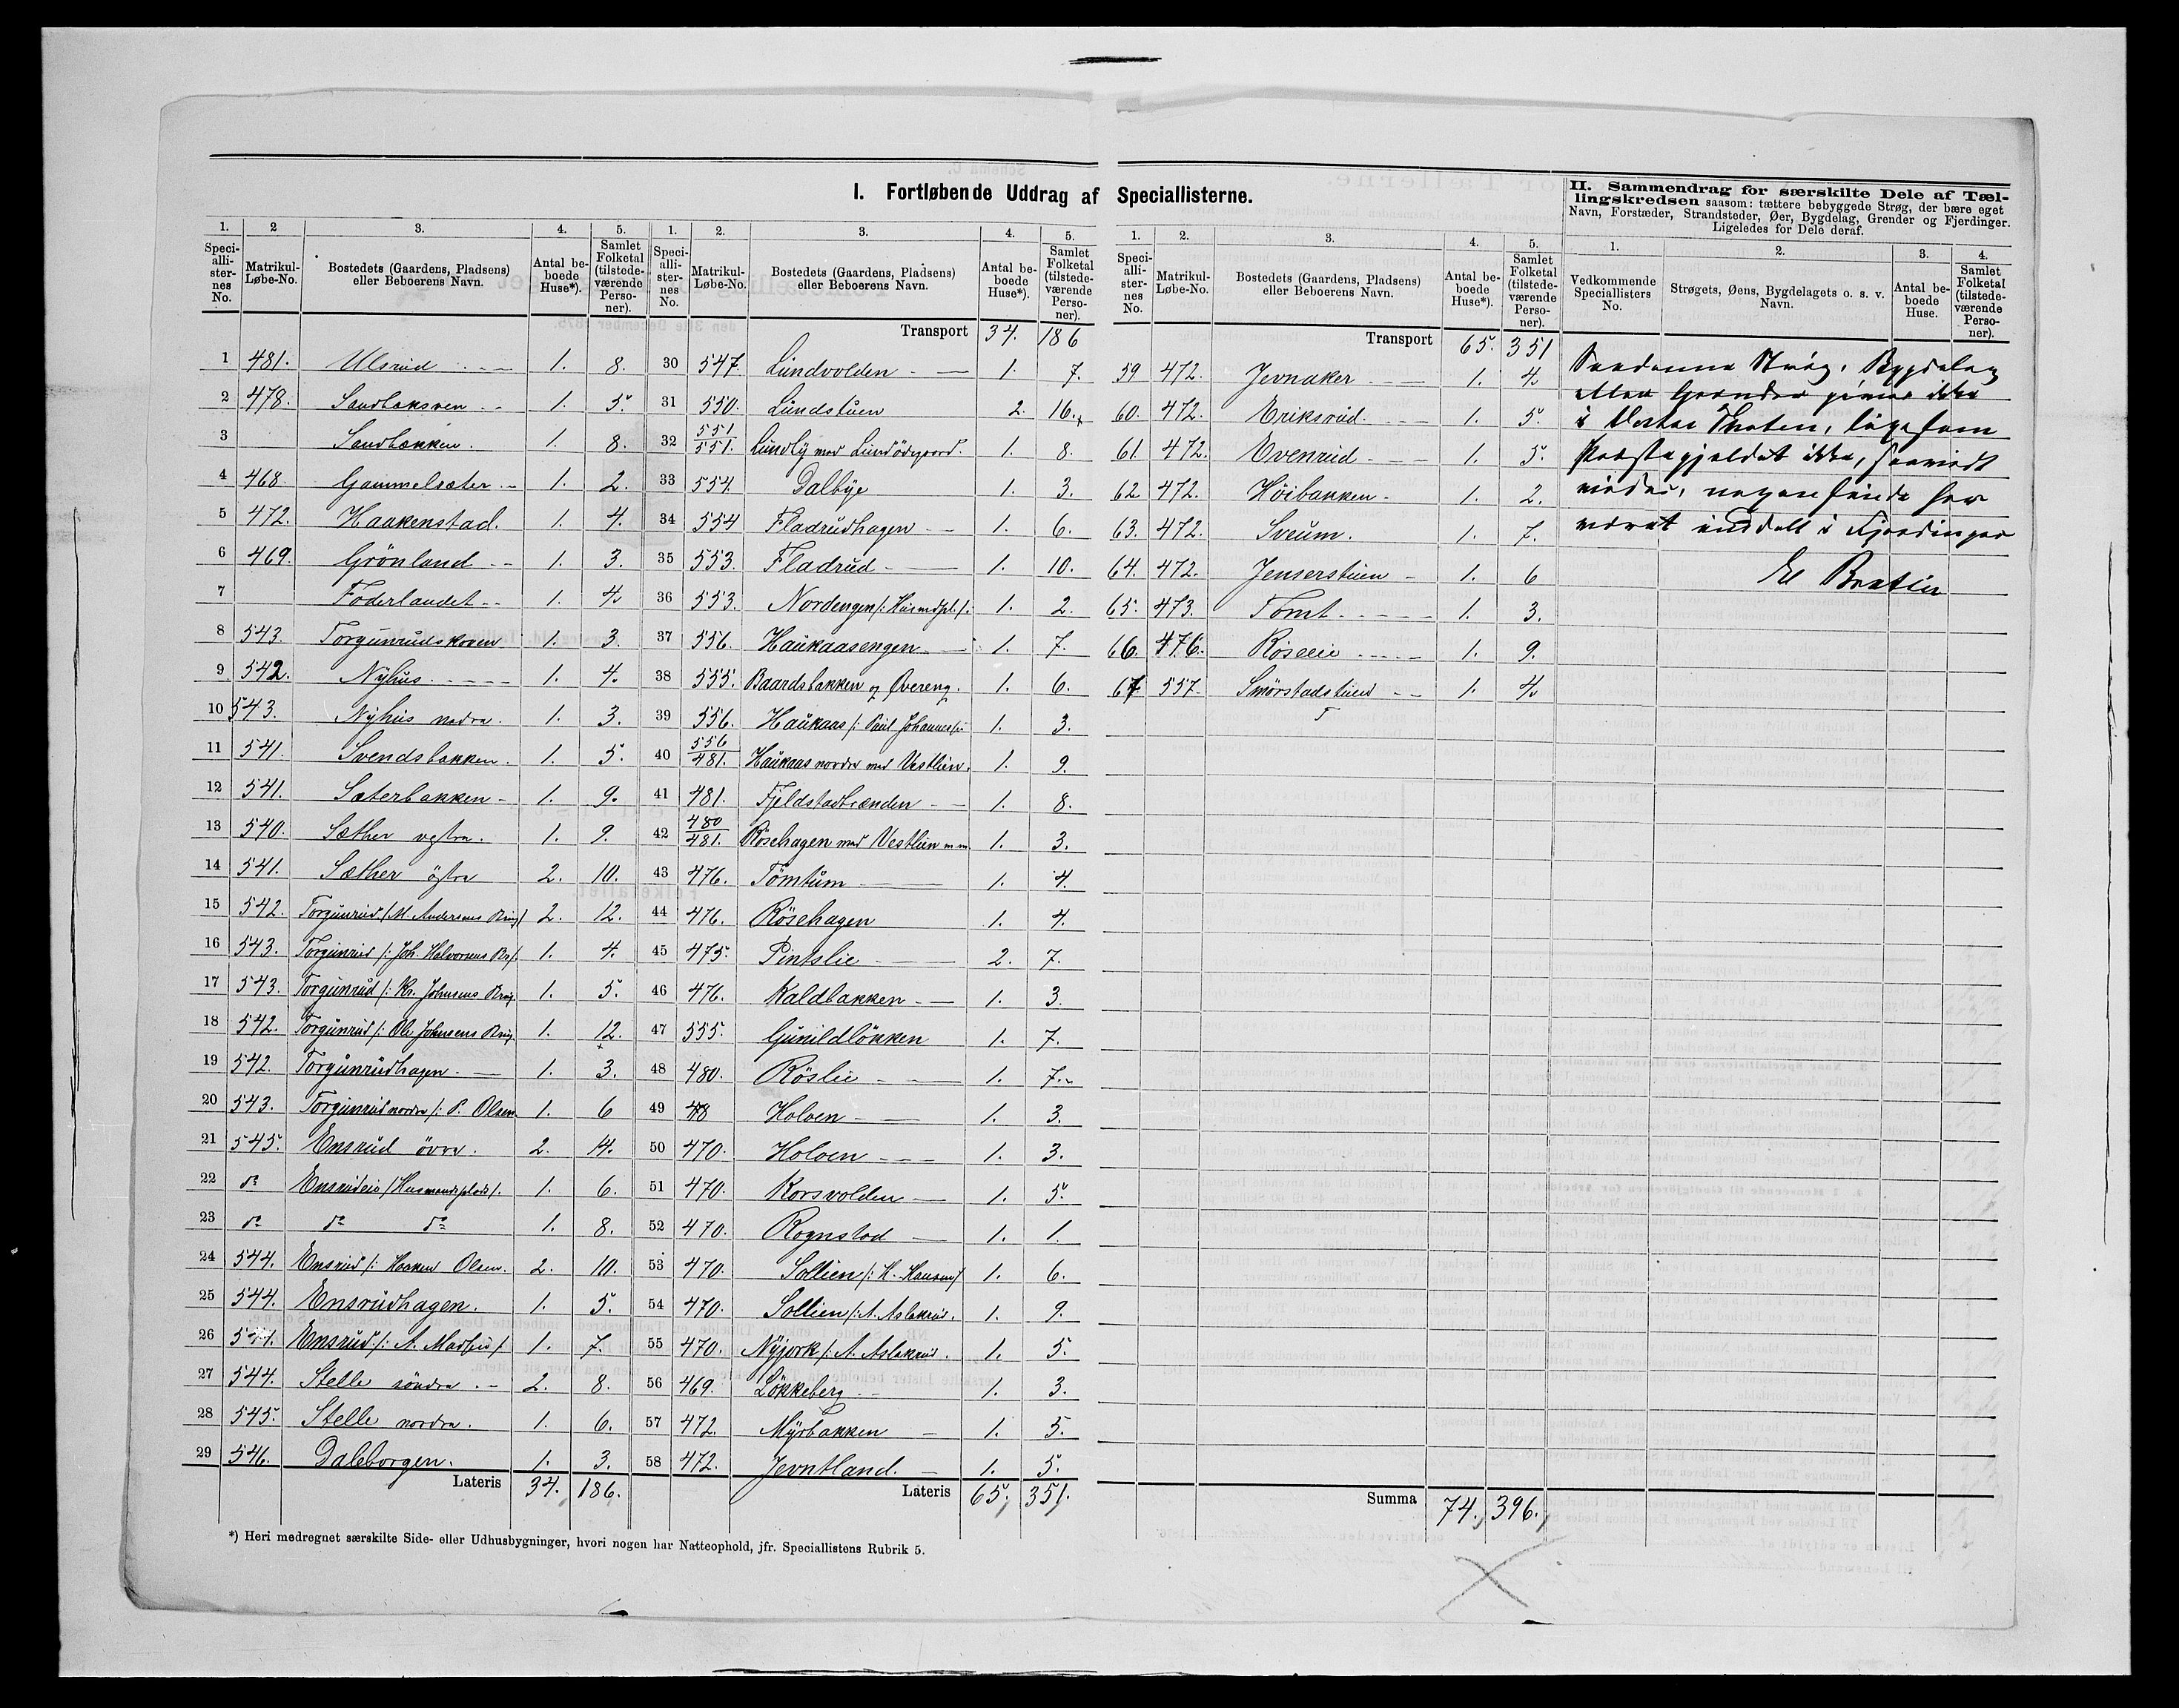 I. Fortløbende Uddrag af Speciallisterne.
II. Sammendrag for særskilte Dele af Tæl-
lingskredsen saasom: tættere bebyggede Strøg, der bære eget
Navn, Forstæder, Strandsteder, Øer, Bygdelag, Grender og Fjerdinger.
Ligeledes for Dele deraf.
1. 2 3. 4. 5.
Speciallisternes No. Matrikul-Løbe-No. Bostedets (Gaardens, Pladsens) eller Beboerens Navn. Antal beboede Huse*). Samlet Folketal (tilstedeværende Personer).
1 481. Ulsrud 1. 8.
2 478. Sandbaksven 1. 5.
3 Sandbakken. 1. 8.
4 468. Gammelsæter 1. 2.
5 472. Haakenstad. 1. 4.
6 469. Grönland 1. 3.
7 Föderlandet 1. 4.
8 543. Torgunrudskoven 1. 3.
9 542. Nyhus 1. 4.
10 543. Nyhus nedre. 1. 3.
11 541. Svendsbakken. 1. 5.
12 541. Sæterbakken 1. 9.
13 540. Sæther vestre. 1. 9.
14 541. Sæther östre 2. 10.
15 542. Torgunrud /: M. Andersens Brug 2. 12.
16 543. Torgunrud /: Joh. Halvorsens Br /: 1. 4.
17 543. Torgunrud /: Kr. Johnsens Brug. 1. 5.
18 542. Torgunrud /: Ole Johnsens Brug. 1. 12.
19 542. Torgunrudhagen. 1. 3.
20 543. Torgunrud nordre /: P. Olsen. 1. 6
21 545. Ensrud övre. 2. 14.
22 do Ensrudeie /: Husmandsplads /. 1. 6.
23 do do do 1. 8.
24 544. Ensrud /: Haaken Olsen. 2. 10.
25 544. Ensrudhagen. 1. 5.
26 544. Ensrud /: A. Madsen /. 1. 7.
27 544. Stelle söndre. 2. 8.
28 545. Stelle nordre. 1. 6.
29 546. Daleborgen. 1. 3.
Lateris 34. 186.
1. 2. 3. 4. 5.
Speciallisternes No. Matrikul-Løbe-No. Bostedets (Gaardens, Pladsens) eller Beboerens Navn. Antal beboede Huse*). Samlet Folketal (tilstedeværende Personer).
Transport 34. 186
30 547. Lundvolden 1. 7.
31 550. Lundstuen 2. 16.
32 551/551. Lundby med Lundödegaard. 1. 8.
33 554. Dalbye 1. 3.
34 554 Fladrudhagen 1. 6.
35 553. Fladrud 1. 10.
36 553. Nordengen /: Husmdpl. /: 1. 2.
37 556. Haukaasengen 1. 7.
38 555. Baardsbakken og Övereng. 1. 6.
39 556. Haukaas /: Paul Johannes/: 1. 3.
40 556/481. Haukaas nordre med Vestlien. 1. 9.
41 481. Fjeldstadbrænden 1. 8.
42 480/481. Rösehagen med Vestlien m m 1. 3.
43 476. Tömtum 1. 4.
44 476. Rösehagen 1. 4.
45 475. Pintslie 2. 7.
46 476. Kaldbakken 1. 3.
47 555. Gunildlökken 1. 7.
48 480. Röslie 1. 7.
49 478 Holoen 1. 3.
50 470. Holoen 1. 3.
51 470. Korsvolden 1. 5.
52 470. Rognstad 1. 1.
53 470. Sollien /: H. Hansen / 1. 6.
54 470. Sollien /: A. Aslakrud. 1. 9.
55 470. Nyjork /: A. Aslakrud. 1. 5.
56 469. Lökkeberg 1. 3.
57 472. Myrbakken 1. 5.
58 472. Jevntland. 1. 5.
Lateris 65. 351.
1. 2. 3. 4. 5.
Speciallisternes No. Matrikul-Løbe-No. Bostedets (Gaardens, Pladsens) eller Beboerens Navn. Antal beboede Huse*). Samlet Folketal (tilstedeværende Personer).
Transport 65. 351
59 472. Jevnaker 1. 4.
60. 472. Eriksrud. 1. 5.
61. 472. Evenrud 1. 5.
62 472. Höibakken 1. 2.
63. 472. Sveum. 1. 7.
64. 472. Jenserstuen 1. 6
65. 473. Tomt 1. 3.
66. 476. Röseeie 1. 9.
67 557. Smörstadstuen 1. 4.
Summa 74. 396.
1. 2. 3. 4.
Vedkommende Speciallisters No. Strøgets, Øens, Bygdelagets o. s. v. Navn. Antal beboede Huse. Samlet Folketal (tilstedeværende Personer).
Saadanne Strøg, Bygdelag
eller Grender gives ikke
i Vestre Thoten, ligesom
Præstegjeldet ikke, saavidt
vides, nogensinde har
været inddelt i Fjerdinger
*) Heri medregnet særskilte Side- eller Udhusbygninger, hvori nogen har Natteophold, jfr. Speciallistens Rubrik 5.